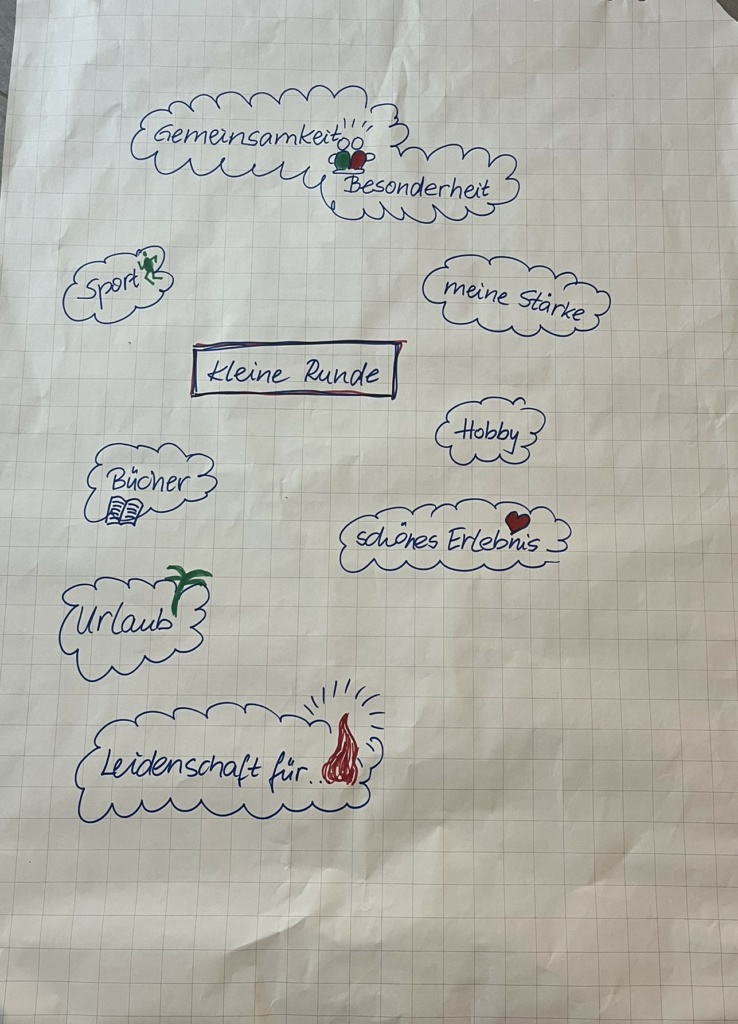 Gemeinsamkeit
Besonderheit
Sport
meine Stärke
kleine Runde
Hobby
Bücher
schönes Erlebnis
Urlaub
Leidenschaft für...